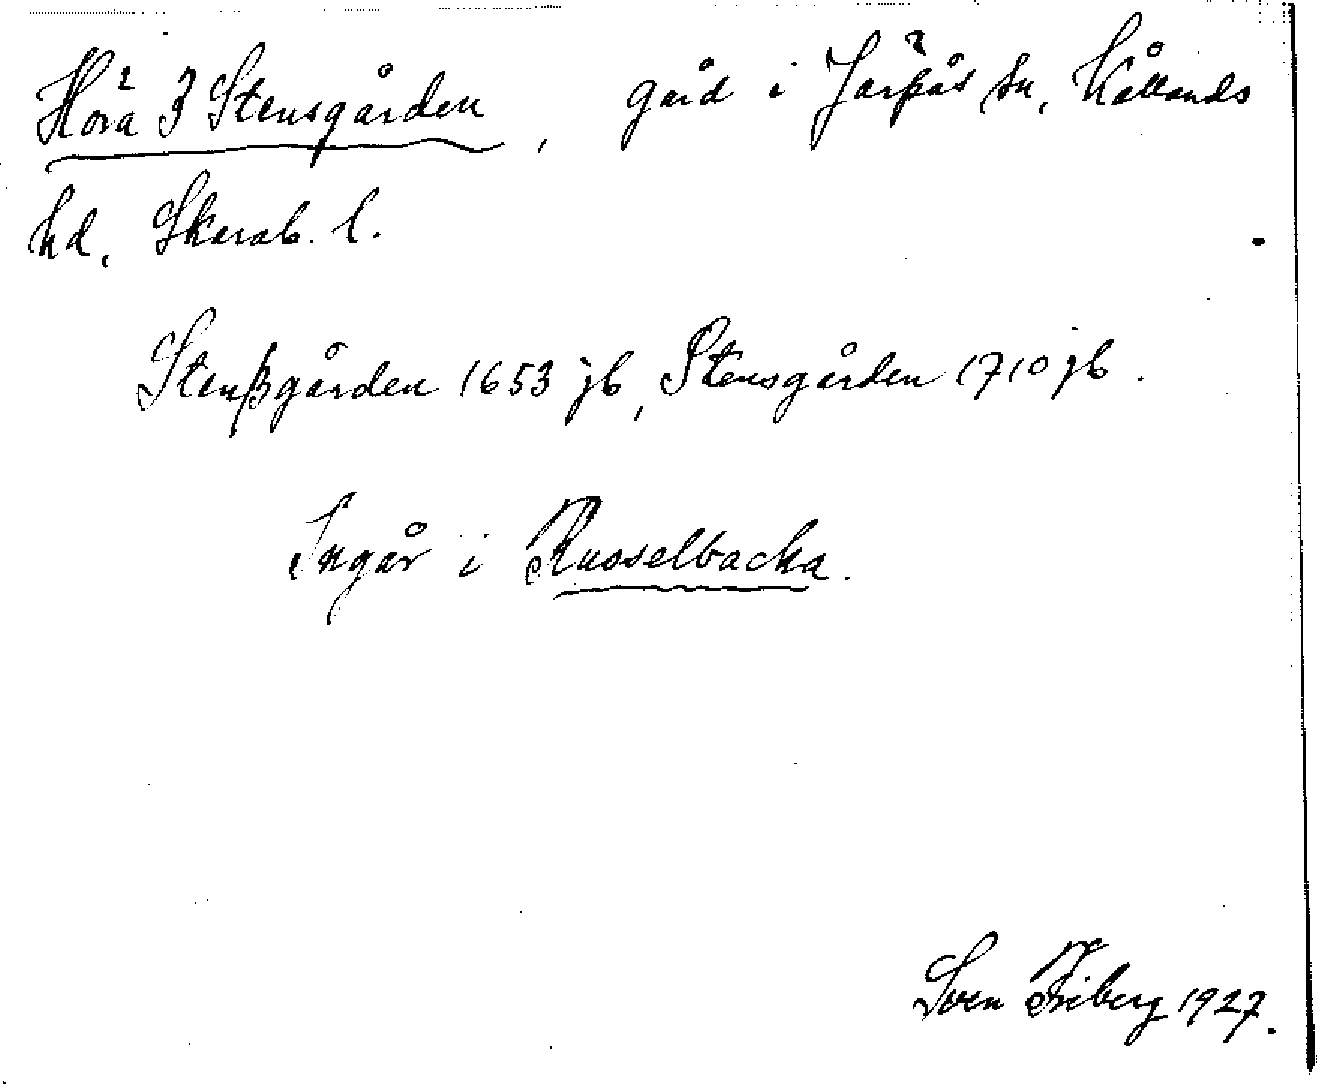 Höra 3 Stensgården, gård i Järpås sn, Kållands
hd, Skarab. l.
Stenßgården 1653 jb, Stensgården 1710 jb.
Ingår i Russelbacka.
Sven Friberg 1927.